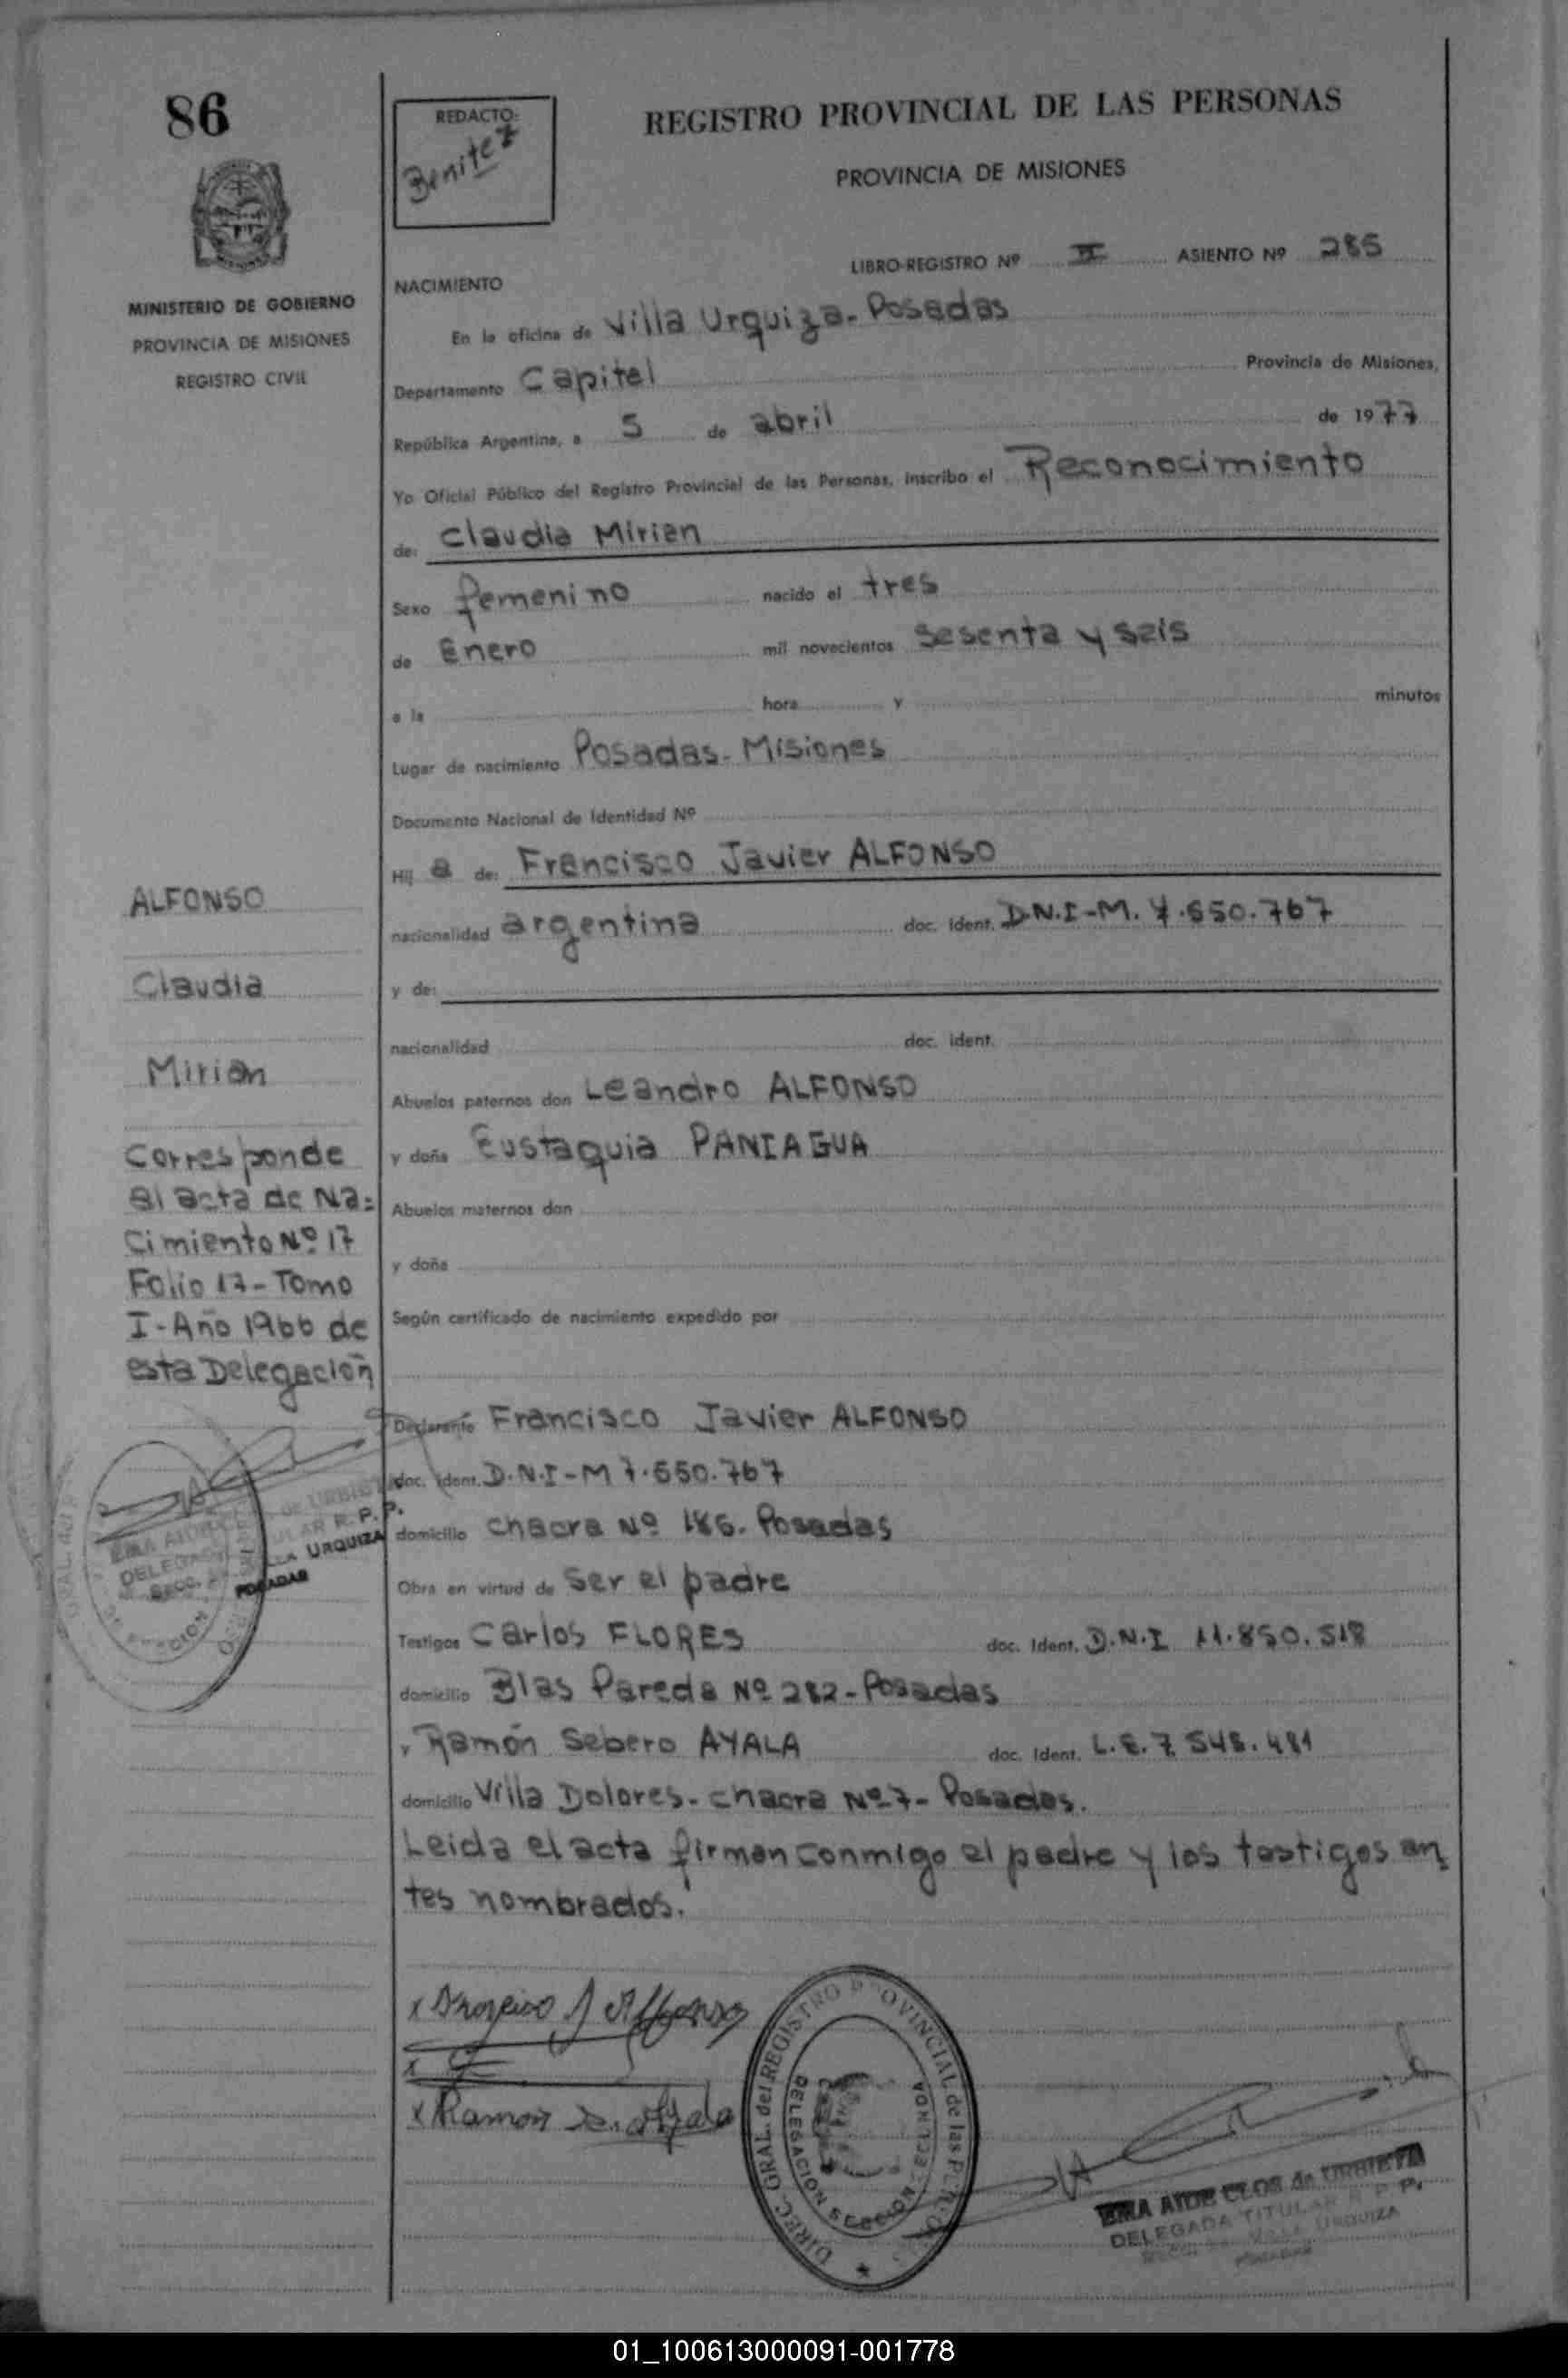 86
REDACTO:
Benitez
REGISTRO PROVINCIAL DE LAS PERSONAS
PROVINCIA DE MISIONES
MINISTERIO DE GOBIERNO
PROVINCIA DE MISIONES
REGISTRO CIVIL
LIBRO-REGISTRO Nº II ASIENTO Nº 285
NACIMIENTO
En la oficina de Villa Urquiza - Posadas
Departamento Capital Provincia de Misiones,
República Argentina, a 5 de abril de 1977
Yo Oficial Público del Registro Provincial de las Personas, inscribo el Reconocimiento
de: Claudia Mirian
Sexo femenino nacido el tres
de Enero mil novecientos sesenta y seis
a la hora y minutos
Lugar de nacimiento Posadas - Misiones
Documento Nacional de Identidad Nº
Hij a de: Francisco Javier ALFONSO
nacionalidad argentina doc. ident. D.N.I-M. 7.650.767
y de:
nacionalidad doc. ident.
Abuelos paternos don Leandro ALFONSO
y doña Eustaquia PANIAGUA
Abuelos maternos don
y doña
Según certificado de nacimiento expedido por
Declarante Francisco Javier ALFONSO
doc. ident. D.N.I-M 7.650.767
domicilio chacra Nº 186. Posadas
Obra en virtud de ser el padre
Testigos Carlos FLORES doc. Ident. D.N.I 11.850.518
domicilio Blas Pareda Nº 282 - Posadas
y Ramón Sebero AYALA doc. Ident. L.E. 7.548.481
domicilio Villa Dolores - chacra Nº 7 - Posadas.
Leida el acta firman conmigo el padre y los testigos an
tes nombrados.
ALFONSO
Claudia
Mirian
Corresponde
al acta de Na=
cimiento Nº 17
Folio 17 - Tomo
I - Año 1966 de
esta Delegación
DE URBIETA
R. P. P.
URQUIZA
POSADAS
x Ramon S. Ayala
DIREC. GRAL. del REGISTRO PROVINCIAL de las PERSONAS
DELEGACION SECCION
EMA AIDE CLOS de URBIETA
DELEGADA TITULAR R. P. P.
VILLA URQUIZA
POSADAS
01_100613000091-001778